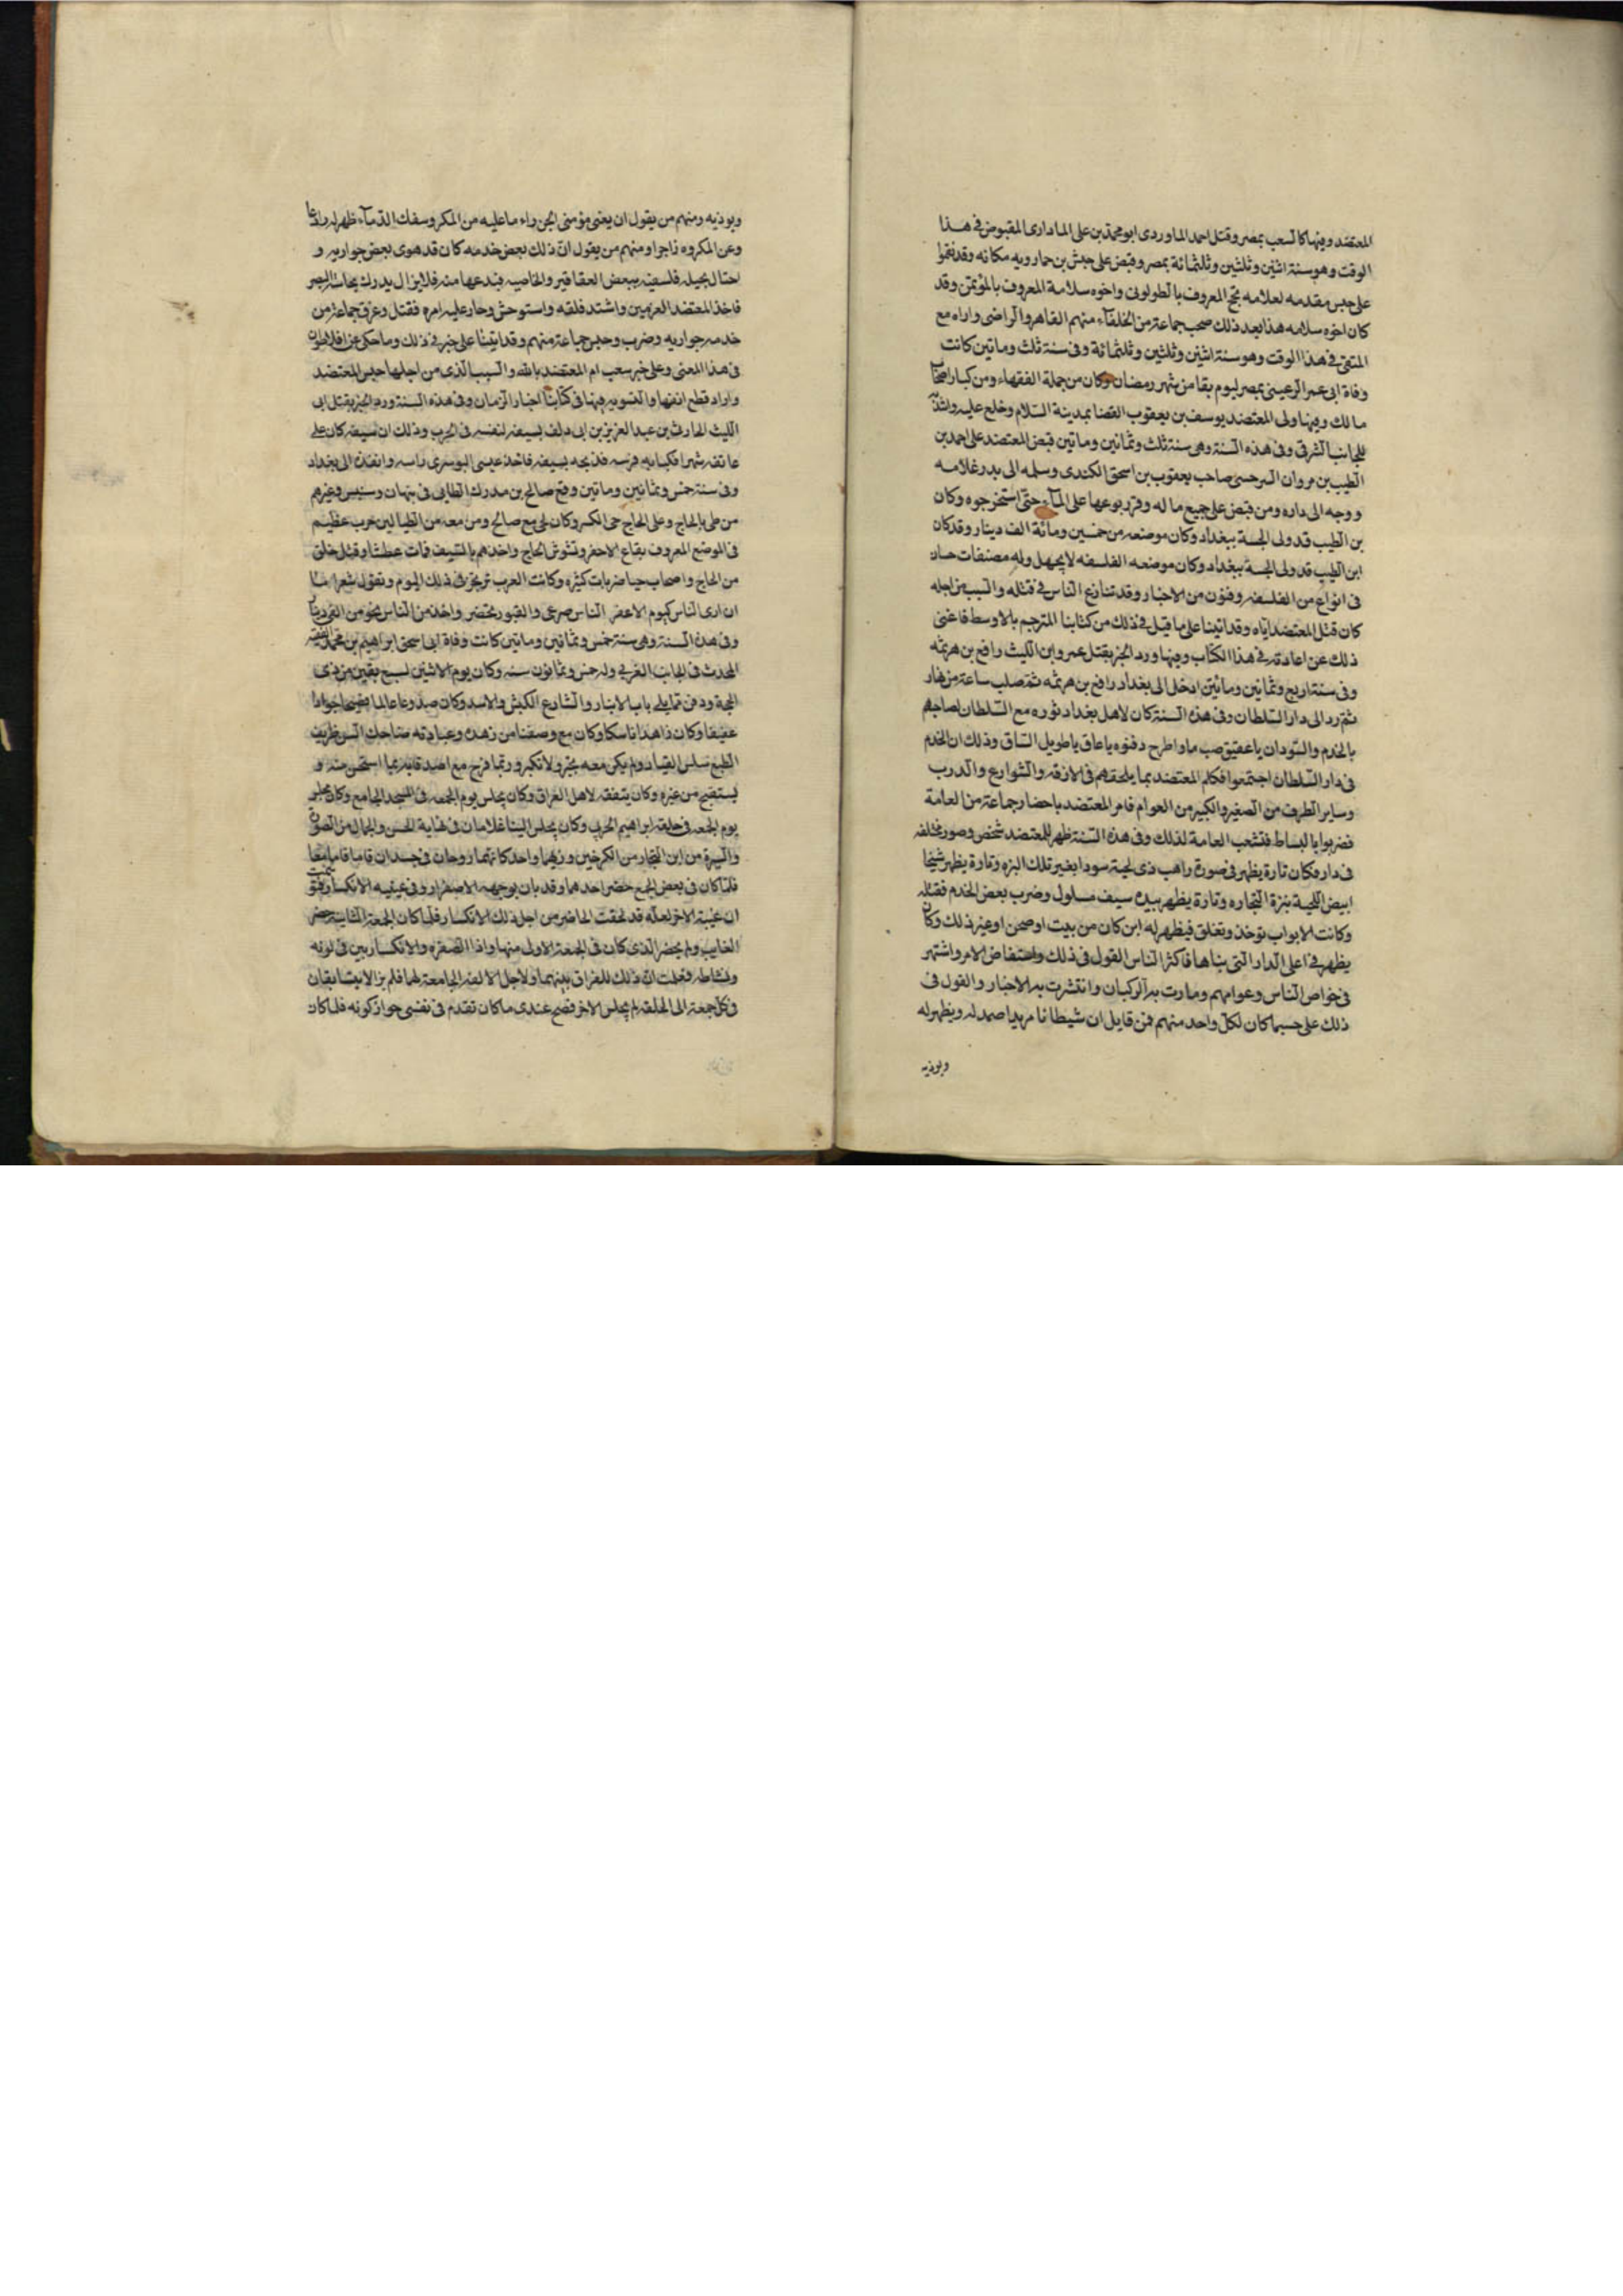 المعتضد وفيها كا لسعب بمصر وقتل احمد الماوردى ابو محمد بن على المادارى المقبوض فى هذا
الوقت وهو سنة اثنين وثلثين وثلثمائة بمصر وقبض على جيش بن حمارويه مكانه وقد نقموا
على جيس مقدمه لعلامه نجح المعروف بالطولونى واخوه سلامة المعروف بالمؤتمن وقد
كان اخوه سلامه هذا بعد ذلك صحب جماعة من الخلفآء منهم القاهر والراضى واراه مع
المتقى فى هذا الوقت وهو سنة اثنين وثلثين وثلثمائة وفى سنة ثلث وماتين كانت
وفاة ابى عمر الرعينى بمصر ليوم بقا من شهر رمضان وكان من جملة الفقهاء ومن كبار اصحاب
مالك وفيها ولى المعتضد يوسف بن يعقوب القضا بمدينة السلام وخلع عليه
للجانب الشرقى وفى هذه السنة وهى سنة ثلث وثمانين وماتين قبض المعتضد على احمد بن
الطيب بن مروان السرحسى صاحب يعقوب بن اسحق الكندى وسلمه الى بدر غلامه
ووجه الى داره ومن قبض على جميع ماله وقرر بوعها على المآء حتى استخرجوه وكان
بن الطيب قد ولى الحسبة ببغداد وكان موضعه من خمسين ومائة الف دينار وقد كان
ابن الطيب قد ولى الحسبة ببغداد وكان موضعه الفلسفه لا يجهل وله مصنفات حسان
فى انواع من الفلسفه وفنون من الاخبار وقد تنازع الناس فى قتله والسبب من اجله
كان قتل المعتضد اياه وقد اتينا على ما قيل فى ذلك من كتابنا المترجم بالاوسط فاغنى
ذلك عن اعادته فى هذا الكتاب وفيها ورد الخبر بقتل عمرو ابن الليث رافع بن هرثمه
وفى سنة اربع وثمانين ومائتين ادخل الى بغداد رافع بن هرثمه ثم صلب ساعة من نهار
ثم رد الى دار السلطان وفى هذه السنة كان لاهل بغداد ثوره مع السلطان لصياحهم
بالخدم والسودان يا عقيق صب ما واطرح دقنوه يا عاق يا طويل الساق وذلك ان الخدم
فى دار السلطان اجتمعوا فكلم المعتضد بما يلحقهم فى الازقه والشوارع والدرب
وساير الطرف من الصغير والكبير من العوام فامر المعتضد باحضار جماعة من العامة
فضربوا بالبساط فتشعب العامة لذلك وفى هذه السنة ظهر للمعتضد شخص وصور مختلفه
فى داره فكان تارة يظهر فى صورة راهب ذى لحية سودا بغير تلك البزه وتارة يظهر شيخا
ابيض اللحية ببزة التجاره وتارة يظهر بيده سيف مسلول وضرب بعض الخدم فقتله
وكانت الابواب توخذ وتغلق فيظهر له اين كان من بيت او صحن او غير ذلك وكان
يظهر فى اعلى الدار التى بناها فاكثر الناس القول فى ذلك واستفاض الامر واشتهر
فى خواص الناس وعوامهم وسارت به الركبان وانتشرت به الاخبار والقول فى
ذلك على حسب ما كان لكل واحد منهم فمن قايل ان شيطانا مريدا صمد له ويظهر له
ويوذيه
ويوذيه ومنهم من يقول ان بعض مؤمنى الجن راء ما عليه من المكر وسفك الدمآء ظهر له رادعا
وعن المكروه زاجرا ومنهم من يقول ان ذلك بعض خدمه كان قد هوى بعض جواريه و
احتال بحيله فلسفيه ببعض العقاقير والخاصيه فيدعها منه فلا يزال يدرك بحاسة البصر
فاخذ المعتضد المعزمين واشتد قلقه واستوحش وحار عليه امره فقتل وغرق جماعة من
خدمه جواريه وضرب وحبس جماعة منهم وقد اتينا على خبر فى ذلك وما حكى عن افلاطون
فى هذا المعنى وعلى خبر سعب ام المعتضد بالله والسبب الذى من اجلها حبس المعتضد
واراد قطع انفها والتسويه فيها فى كتابنا اخبار الزمان وفى هذه السنة ورد الخبر بقتل ابى
الليث الحارث بن عبد العزيز بن ابى دلف بسيفه لنفسه فى الحرب وذلك ان سيفه كان على
عاتقه شهرا فكبا به فرسه فذبحه بسيفه فاخذ عيسى النوسرى راسه وانفذه الى بغداد
وفى سنة خمس وثمانين وماتين وقع صالح بن مدرك الطايى فى نبهان وسنبس وغيرهم
من طى بالحاج وعلى الحاج حى الكبير وكان لحى مع صالح ومن معه من الطياليين حرب عظيم
فى الموضع المعروف بقاع الاحفر وتشوش الحاج واخذهم بالسيف فمات عطشا وقتل خلق
من الحاج واصحاب حيا ضربات كثيره وكانت العرب ترتجز فى ذلك اليوم وتقول شعرا
ان ارى الناس كيوم الاعفر الناس صرعى والقبور تحتضر واخذ من الناس نحو من الفى دينار
وفى هذه السنة وهى سنة خمس وثمانين وماتين كانت وفاة ابى اسحق ابراهيم بن محمد الفقيه
المحدث فى الجانب الغربى وله خمس وثمانون سنه وكان يوم الاثنين لسبع بقين من ذى
الحجة ودفن مما يلى باب الانبار والشارع الكبش والاسد وكان صدوعا عالما فصيحا جوادا
عفيفا وكان زاهدا ناسكا وكان مع وصفنا من زهده وعبادته ضاحك السن ظريف
الطبع سلس القياد ولم يكن معه تجبر ولا تكبر وربما مزح مع اصدقايه بما استحسن منه و
يستقبح من غيره وكان يتفقه لاهل العراق وكان يجلس يوم الجمعه فى المسجد الجامع وكان يجلس
يوم الجمعه فى حلقة ابراهيم الحربى وكان يجلس الينا غلامان فى نهاية الحسن والجمال من الصون
والسيرة من ابن التجار من الكرخين وزيهما واحد كانهما روحان فى جسدان قاما قاما معا
فلما كان فى بعض الجمع حضر احدهما وقد بان بوجهه الاصفرار وفى عينيه الانكسار
ان غيبة الاخر لعلة قد لحقت الحاضر من اجل ذلك الانكسار فلما كان الجمعة الثانية حضر
الغايب ولم يحضر الذى كان فى الجمعة الاولى منهما واذا الصفره والانكسار بين فى لونه
ونشاطه فعلمت ان ذلك للفراق بينهما ولاجل الالفة الجامعة لهما فلم يزالا يتسابقان
فى كل جمعة الى الحلقه لم يجلس الاخر فصح عندى ما كان تقدم فى نفسى جواز كونه فلما كان